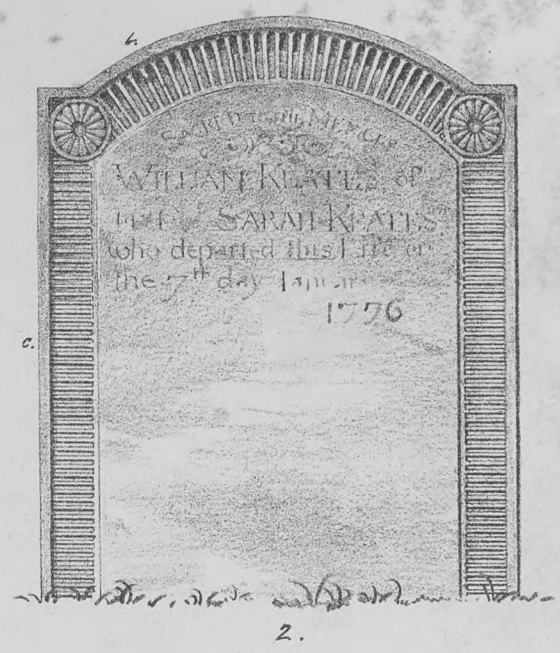 b.
SACRED to the MEMORY
WILLIAM KEATES, of
SARAH KEATES
who departed this Life on
the 7th day Januar
1776
c.
2.